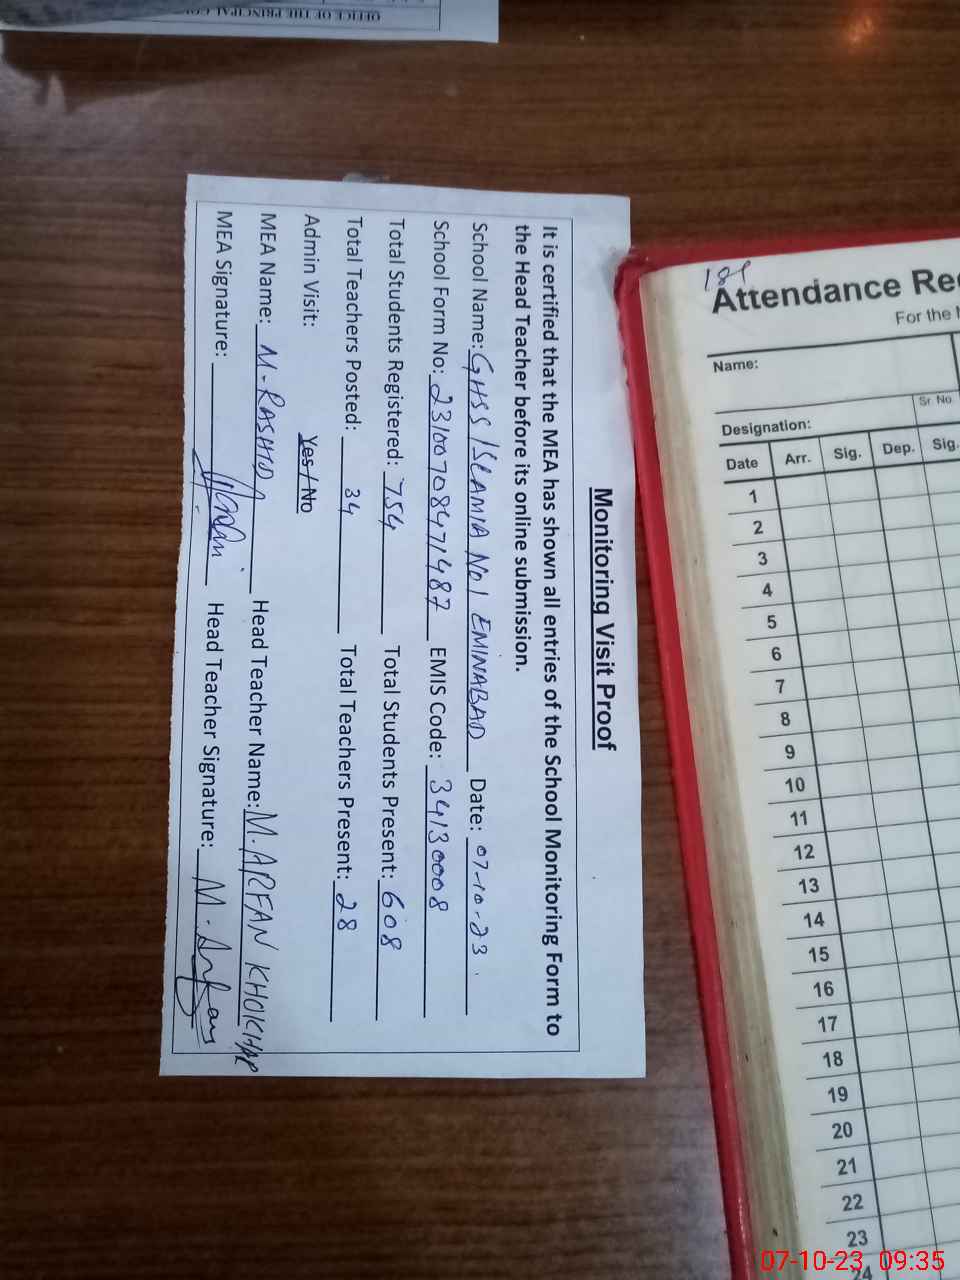 OFFICE OF THE PRINCIPAL
Monitoring Visit Proof
It is certified that the MEA has shown all entries of the School Monitoring Form to
the Head Teacher before its online submission.
School Name: GHSS ISLAMIA No1 EMINABAD Date: 07-10-23
School Form No: 23100708471487 EMIS Code: 34130008
Total Students Registered: 754 Total Students Present: 608
Total Teachers Posted: 34 Total Teachers Present: 28
Admin Visit: Yes / No
MEA Name: M. RASHID Head Teacher Name: M. ARFAN KHOKHAR
MEA Signature: Head Teacher Signature: M. Arfan
Attendance Re
For the
Name:
Sr. No.
Designation:
Date Arr. Sig. Dep. Sig.
1
2
3
4
5
6
7
8
9
10
11
12
13
14
15
16
17
18
19
20
21
22
23
24
07-10-23 09:35